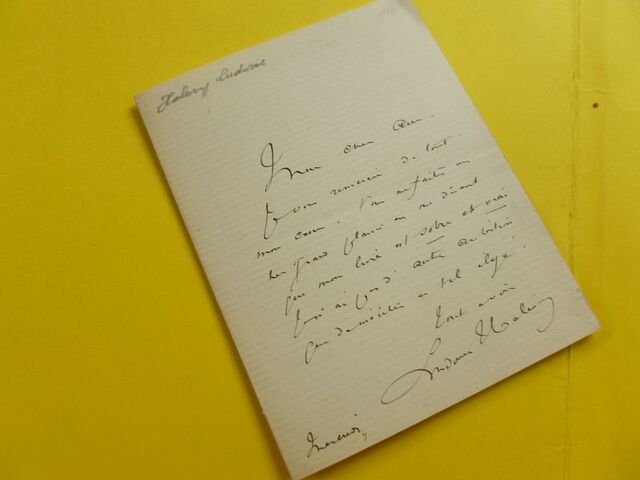 Halevy Ludovic
Mon cher ami.
Je vous remercie de tout
mon coeur. Vous me faites un
très grand plaisir en me disant
que mon livre est sobre et vrai
Je n'ai pas d'autre ambition
que de mériter un tel éloge.
Tout à vous
Ludovic Halévy
Mercredi,